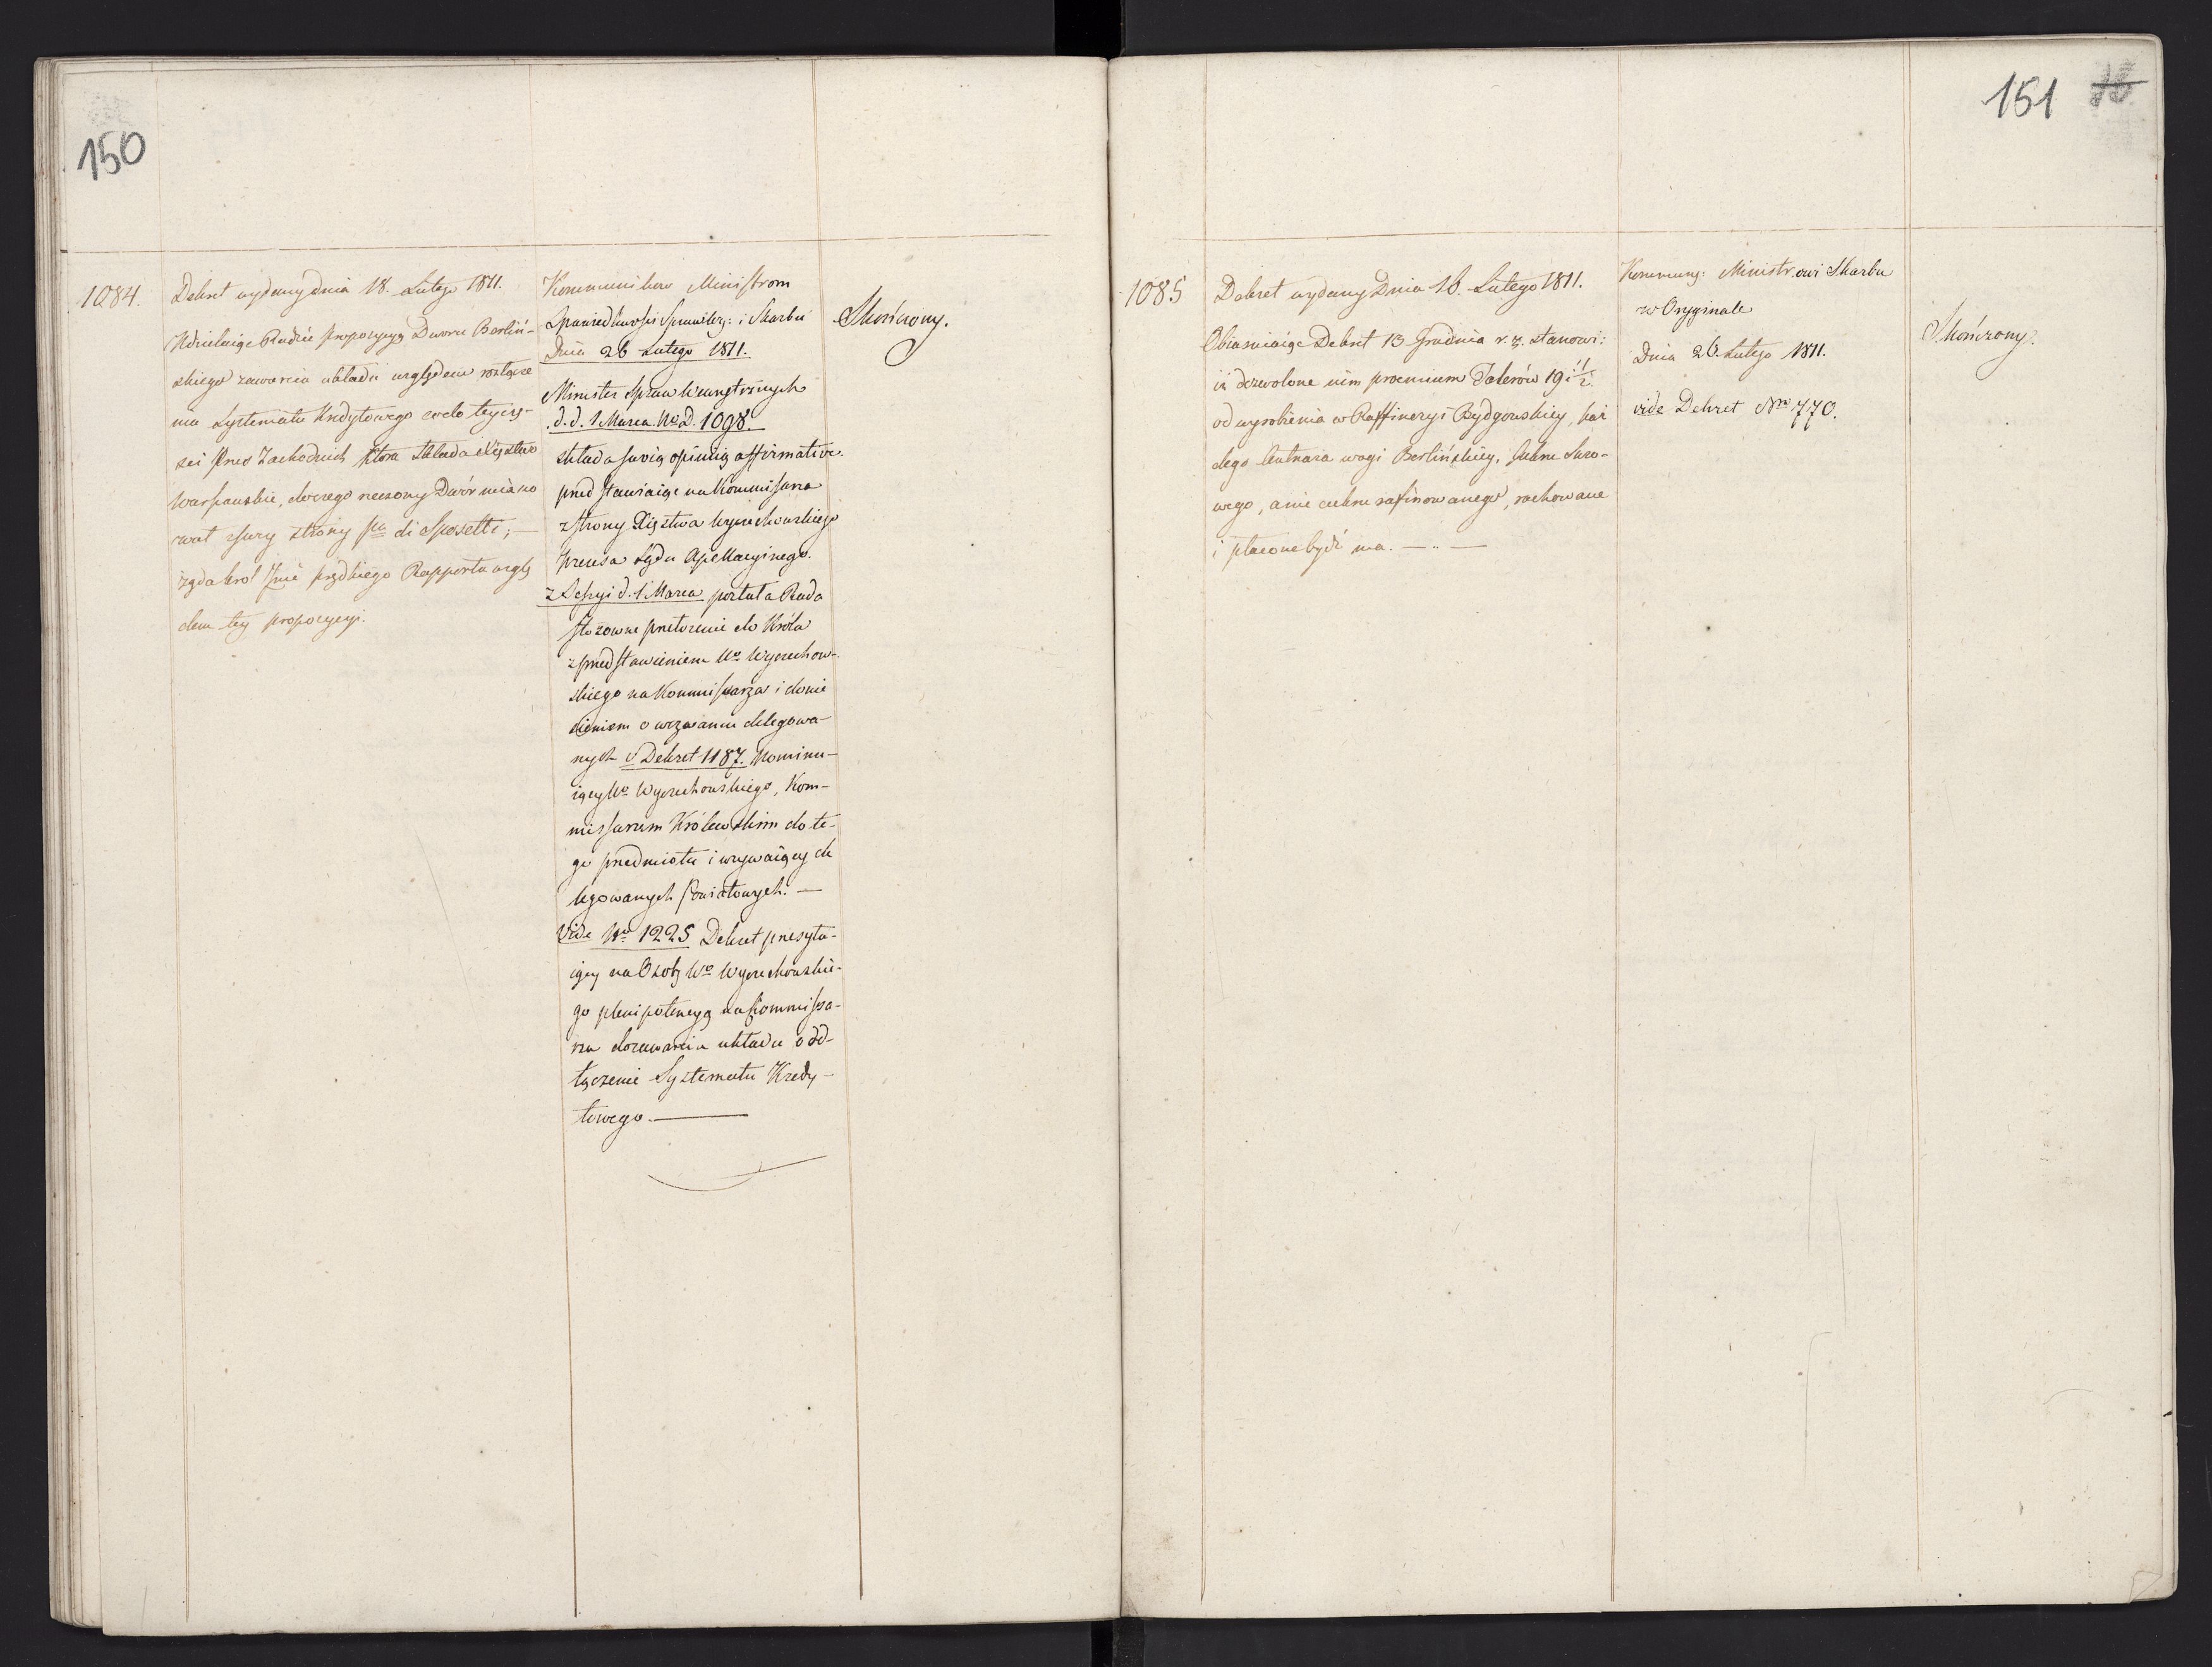 150
1084.
Dekret wydany dnia 18. Lutego 1811.
Udzielaiąc Radzie propozycyą Dworu Berliń-
skiego zawarcia układu względem rozłącze
nia Systematu Kredytowego co do tey czę-
ści Prus Zachodnich która składa Xięstwo
Warszawskie, do czego rzeczony Dwór miano
wał z swey strony Pa di Sposetti; —
żąda Król Jmć prędkiego Rapportu wzglę
dem tey propozycyi.
Kommunikow Ministrom
Sprawiedliwości Spraw Wew: i Skarbu
Dnia 26 Lutego 1811.
Minister Spraw Wewnętrznych
d. d. 1 Marca No D. 1098.
składa swoią opinią affirmative.
przedstawiaiąc na Kommissarza
z strony Xięstwa Wyczechowskiego
Prezesa Sądu Apellacyinego.
z Sessyi d. 1 Marca posłała Rada
stosowne przełożenie do Króla
z przedstawieniem Wo Wyczechow-
skiego na Kommissarza i donie
sieniem o wezwaniu delegowa-
nych v Dekret 1187. Nominu-
iący Wo Wyczechowskiego, Kom-
missarzem Królewskim do te-
go przedmiotu i wzywaiący de
legowanych Powiatowych. —
Vide No 1225 Dekret przesyła-
iący na Osobę Wo Wyczechowskie-
go plenipotencyą na Kommissa-
rza do zawarcia układu o od-
łączenie Systematu Kredy-
towego. —
Skończony.
151
1085
Dekret wydany Dnia 18. Lutego 1811.
Obiaśniaiąc Dekret 13 Grudnia r. z. stanowi:
iż dozwolone nim praemium Talerów 19 i 1/2
od wyrobienia w Raffineryi Bydgowskiey, każ
dego Centnara wagi Berlińskiey, Cukru Suro-
wego, a nie cukru rafinowanego, rachowane
i płacone bydź ma. — . —
Kommung: Ministrowi Skarbu
w Oryginale
Dnia 26. Lutego 1811.
vide Dekret Nro 770.
Skończony.